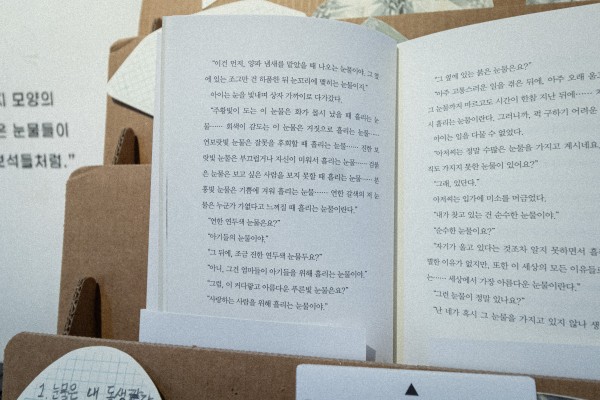 지 모양의
은 눈물들이
보석들처럼."
"이건 먼저, 양파 냄새를 맡았을 때 나오는 눈물이야. 그 옆
에 있는 조그만 건 하품한 뒤 눈꼬리에 맺히는 눈물이지."
아이는 눈을 빛내며 상자 가까이로 다가갔다.
"주황빛이 도는 이 눈물은 화가 몹시 났을 때 흘리는 눈
물…… 회색이 감도는 이 눈물은 거짓으로 흘리는 눈물……
연보랏빛 눈물은 잘못을 후회할 때 흘리는 눈물…… 진한 보
랏빛 눈물은 부끄럽거나 자신이 미워서 흘리는 눈물…… 검붉
은 눈물은 보고 싶은 사람을 보지 못할 때 흘리는 눈물…… 분
홍빛 눈물은 기쁨에 겨워 흘리는 눈물…… 연한 갈색의 저 눈
물은 누군가 가엾다고 느껴질 때 흘리는 눈물이란다."
"연한 연두색 눈물은요?"
"아기들의 눈물이야."
"그 뒤에, 조금 진한 연두색 눈물두요?"
"아니, 그건 엄마들이 아기들을 위해 흘리는 눈물이야."
"그럼, 이 커다랗고 아름다운 푸른빛 눈물은요?"
"사랑하는 사람을 위해 흘리는 눈물이야."
"그 옆에 있는 붉은 눈물은요?"
"아주 고통스러운 일을 겪은 뒤에, 아주 오래 울고
그 눈물까지 마르고도 시간이 한참 지난 뒤에……
시 흘리는 눈물이란다. 그러니까, 퍽 구하기 어려운
아이는 입을 다물 수 없었다.
"아저씨는 정말 수많은 눈물을 가지고 계시네요.
직도 가지지 못한 눈물이 있어요?"
"그래, 있단다."
아저씨는 입가에 미소를 머금었다.
"내가 찾고 있는 건 순수한 눈물이야."
"순수한 눈물이요?"
"자기가 울고 있다는 것조차 알지 못하면서 흘리
별한 이유가 없지만, 또한 이 세상의 모든 이유들로
는…… 세상에서 가장 아름다운 눈물이란다."
"그런 눈물이 정말 있나요?"
"난 네가 혹시 그 눈물을 가지고 있지 않나 생
1. 눈물은 내 동생